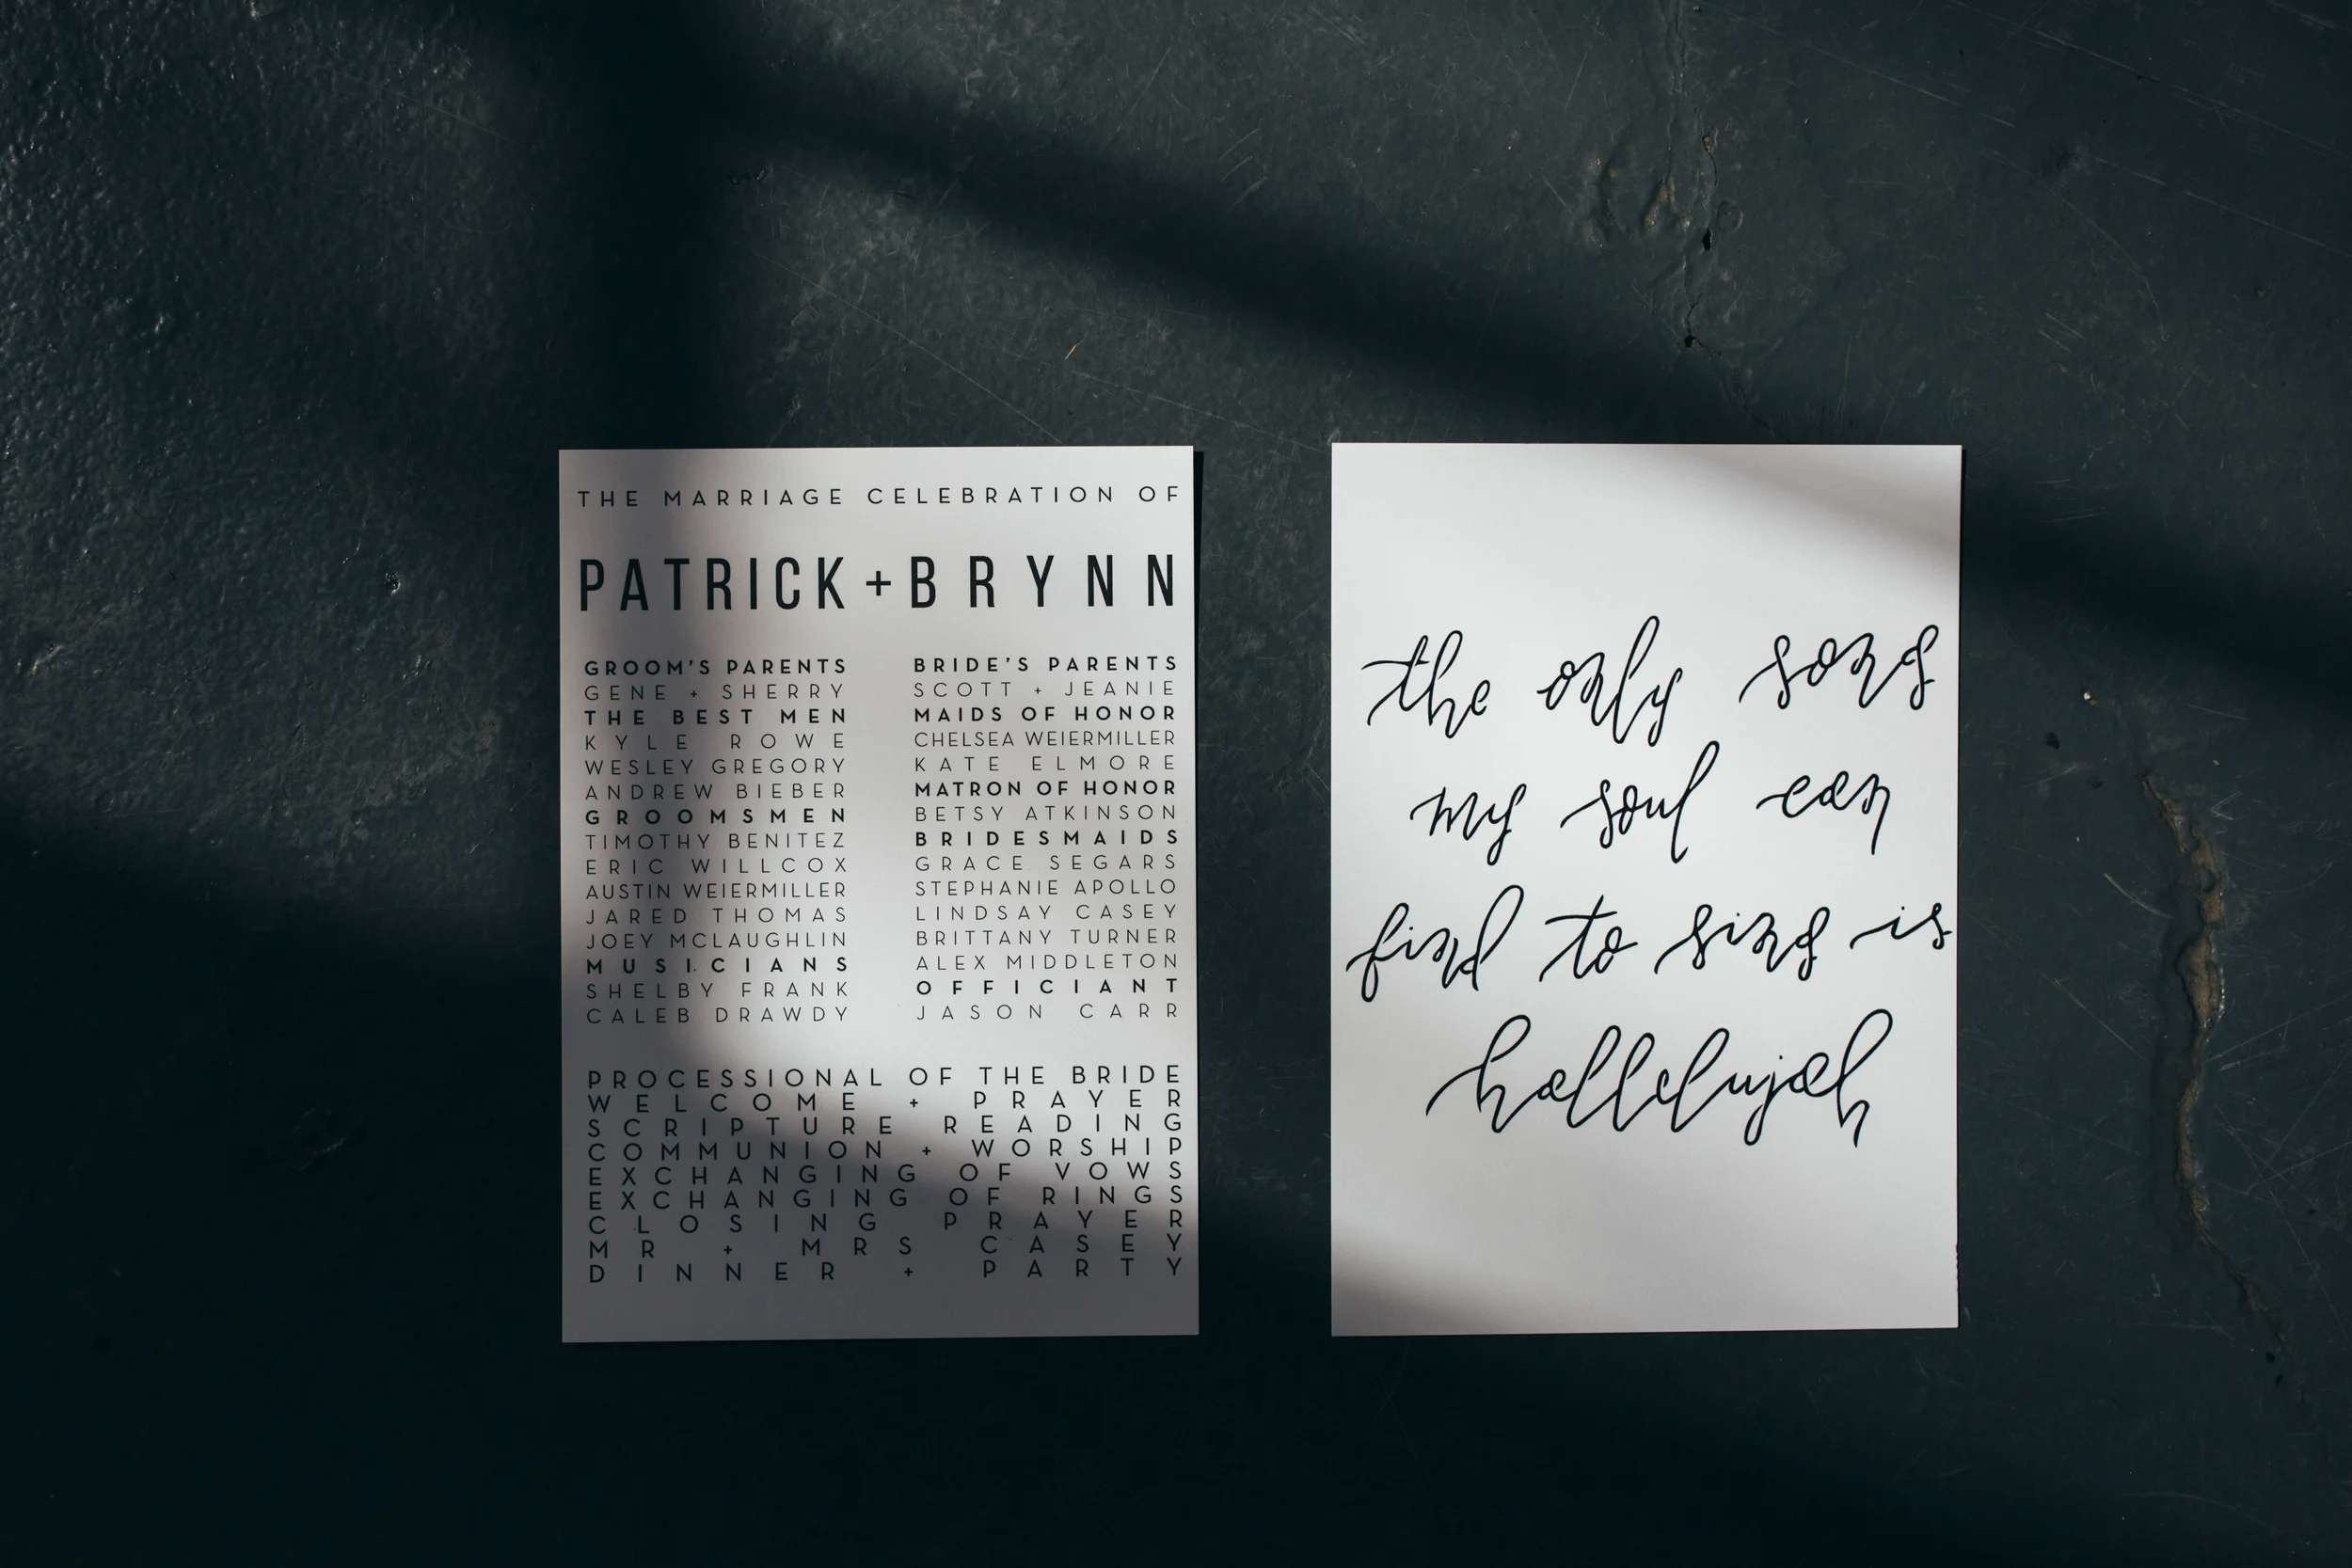 THE MARRIAGE CELEBRATION OF
PATRICK + BRYNN
GROOM'S PARENTS
GENE + SHERRY
THE BEST MEN
KYLE ROWE
WESLEY GREGORY
ANDREW BIEBER
GROOMSMEN
TIMOTHY BENITEZ
ERIC WILLCOX
AUSTIN WEIERMILLER
JARED THOMAS
JOEY MCLAUGHLIN
MUSICIANS
SHELBY FRANK
CALEB DRAWDY
BRIDE'S PARENTS
SCOTT + JEANIE
MAIDS OF HONOR
CHELSEA WEIERMILLER
KATE ELMORE
MATRON OF HONOR
BETSY ATKINSON
BRIDESMAIDS
GRACE SEGARS
STEPHANIE APOLLO
LINDSAY CASEY
BRITTANY TURNER
ALEX MIDDLETON
OFFICIANT
JASON CARR
PROCESSIONAL OF THE BRIDE
WELCOME + PRAYER
SCRIPTURE READING
COMMUNION + WORSHIP
EXCHANGING OF VOWS
EXCHANGING OF RINGS
CLOSING PRAYER
MR + MRS CASEY
DINNER + PARTY
the only song
my soul can
find to sing is
hallelujah